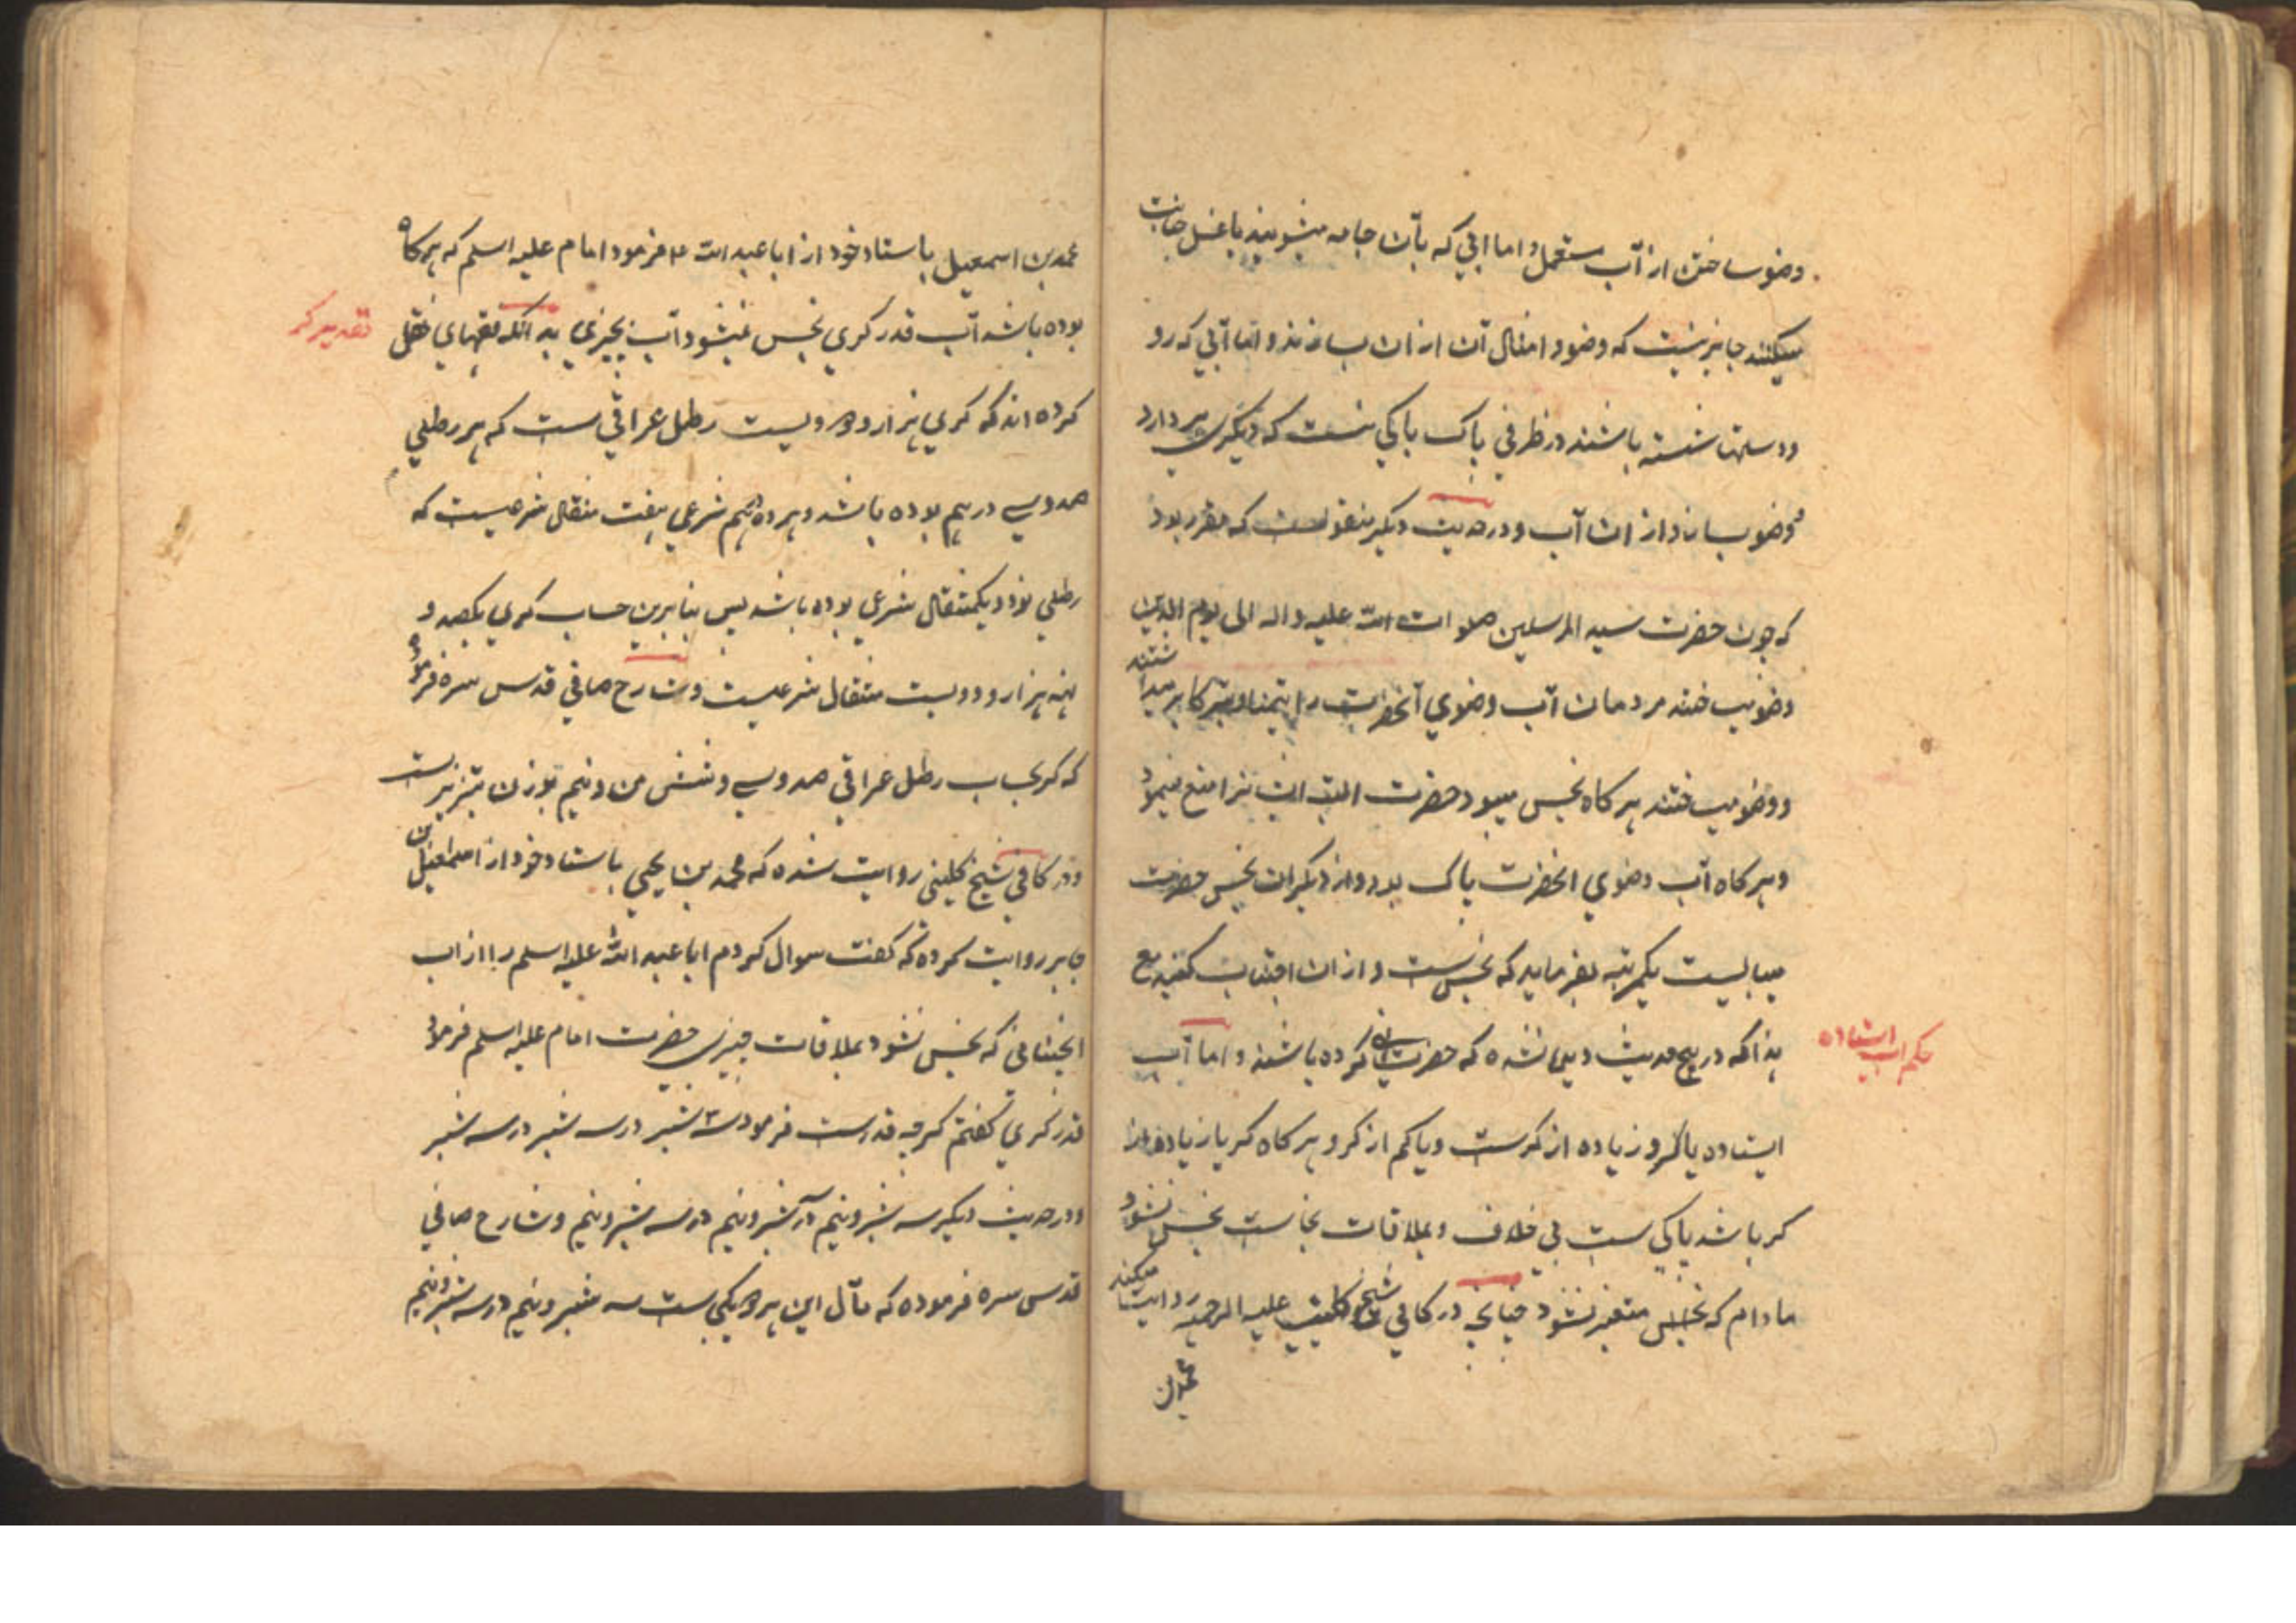 وضو ساختن از آب مستعمل و اما ابی که بآن جامه میشویند یا غسل جنابت
میکنند جایز نیست که وضو و امثال آن ازان بسازند و اما آبی که رو
و دستها شسته باشند در ظرفی پاک باکی نیست که دیگری بردارد
و وضو بسازد از ان آب و در حدیث دیگر منقولست که مقرر بود
که چون حضرت سید المرسلین صلوات الله علیه و اله الی یوم الدین
وضو میساختند مردمان آب وضوی آنحضرت را تیمنا و تبرکا بر میداشتند
و وضو میساختند هر کاه نجس میبود حضرت البته ایشانرا منع مینمود
و هر کاه آب وضوی انحضرت پاک بود و از دیکران نجس حضرت
میبایست یکمرتبه بفرماید که نجس است و از ان اجتناب کنید مع
هذا که در هیچ حدیث دیده نشده که حضرت کرده باشند و اما آب
حکم آب استاده
ایستاده یا کر و زیاده از کرست و یا کم از کر و هر کاه کر یا زیاده از
کر باشد پاکی ست بی خلاف و بملاقات نجاست نجس نشود
مادام که نجاس متغیر نشود چنانچه در کافی شیخ کلینی علیه الرحمه روایت میکند
محمد بن
محمد بن اسمعیل باسناد خود از ابا عبد الله ع فرمود امام علیه اسلم که هر کاه
بوده باشد آب قدر کری نجس نمیشود آب بچیزی بد انکه فقهای نقل
تقدیر کر
کرده اند که کری هزار و دویست رطل عراقی ست که هر رطلی
صد و سی درهم بوده باشد و هر ده درهم شرعی هفت مثقال شرعیست که
رطلی نود و یکمثقال شرعی بوده باشد پس بنابرین حساب کری یکصد و
نه هزار و دویست مثقال شرعیست و شارح صافی قدس سره فرموده
که کر بحساب رطل عراقی صد و سی و شش من و نیم بوزن تبریزست
و در کافی شیخ کلینی روایت شده که محمد بن یحیی باسناد خود از اسمعیل بن
جابر روایت کرده که کفت سوال کردم ابا عبد الله علیه اسلم را از اب
انچنانی که نجس نشود بملاقات چیزی حضرت امام علیه اسلم فرمود
قدر کری کفتم کر چه قدرست فرمود سه شبر در سه شبر در سه شبر
و در حدیث دیکر سه شبر و نیم در سه شبر و نیم در سه شبر و نیم و شارح صافی
قدس سره فرموده که مآل این هر دو یکی ست سه شبر و نیم در سه شبر و نیم